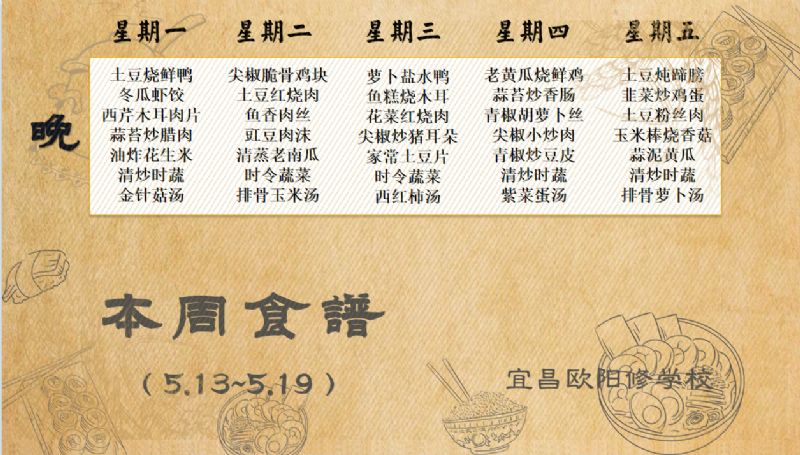 星期一 星期二 星期三 星期四 星期五
晚
土豆烧鲜鸭 尖椒脆骨鸡块 萝卜盐水鸭 老黄瓜烧鲜鸡 土豆炖蹄膀
冬瓜虾饺 土豆红烧肉 鱼糕烧木耳 蒜苔炒香肠 韭菜炒鸡蛋
西芹木耳肉片 鱼香肉丝 花菜红烧肉 青椒胡萝卜丝 土豆粉丝肉
蒜苔炒腊肉 豇豆肉沫 尖椒炒猪耳朵 尖椒小炒肉 玉米棒烧香菇
油炸花生米 清蒸老南瓜 家常土豆片 青椒炒豆皮 蒜泥黄瓜
清炒时蔬 时令蔬菜 时令蔬菜 清炒时蔬 清炒时蔬
金针菇汤 排骨玉米汤 西红柿汤 紫菜蛋汤 排骨萝卜汤
本周食譜
（5.13~5.19）
宜昌欧阳修学校